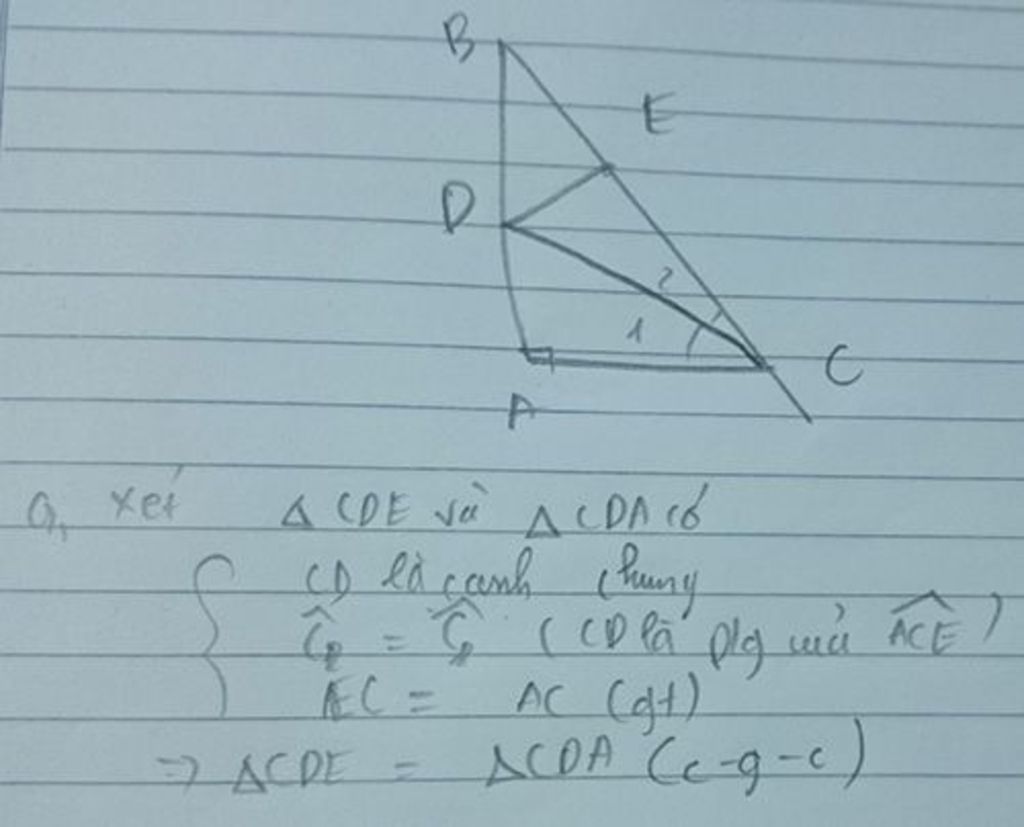 B
E
D
2
1
C
A
a, xét △ CDE và △ CDA có
CD là cạnh chung
Ĉ₂ = Ĉ₁ ( CD là p/g của ACE )
EC = AC (gt)
=> △CDE = △CDA (c-g-c)